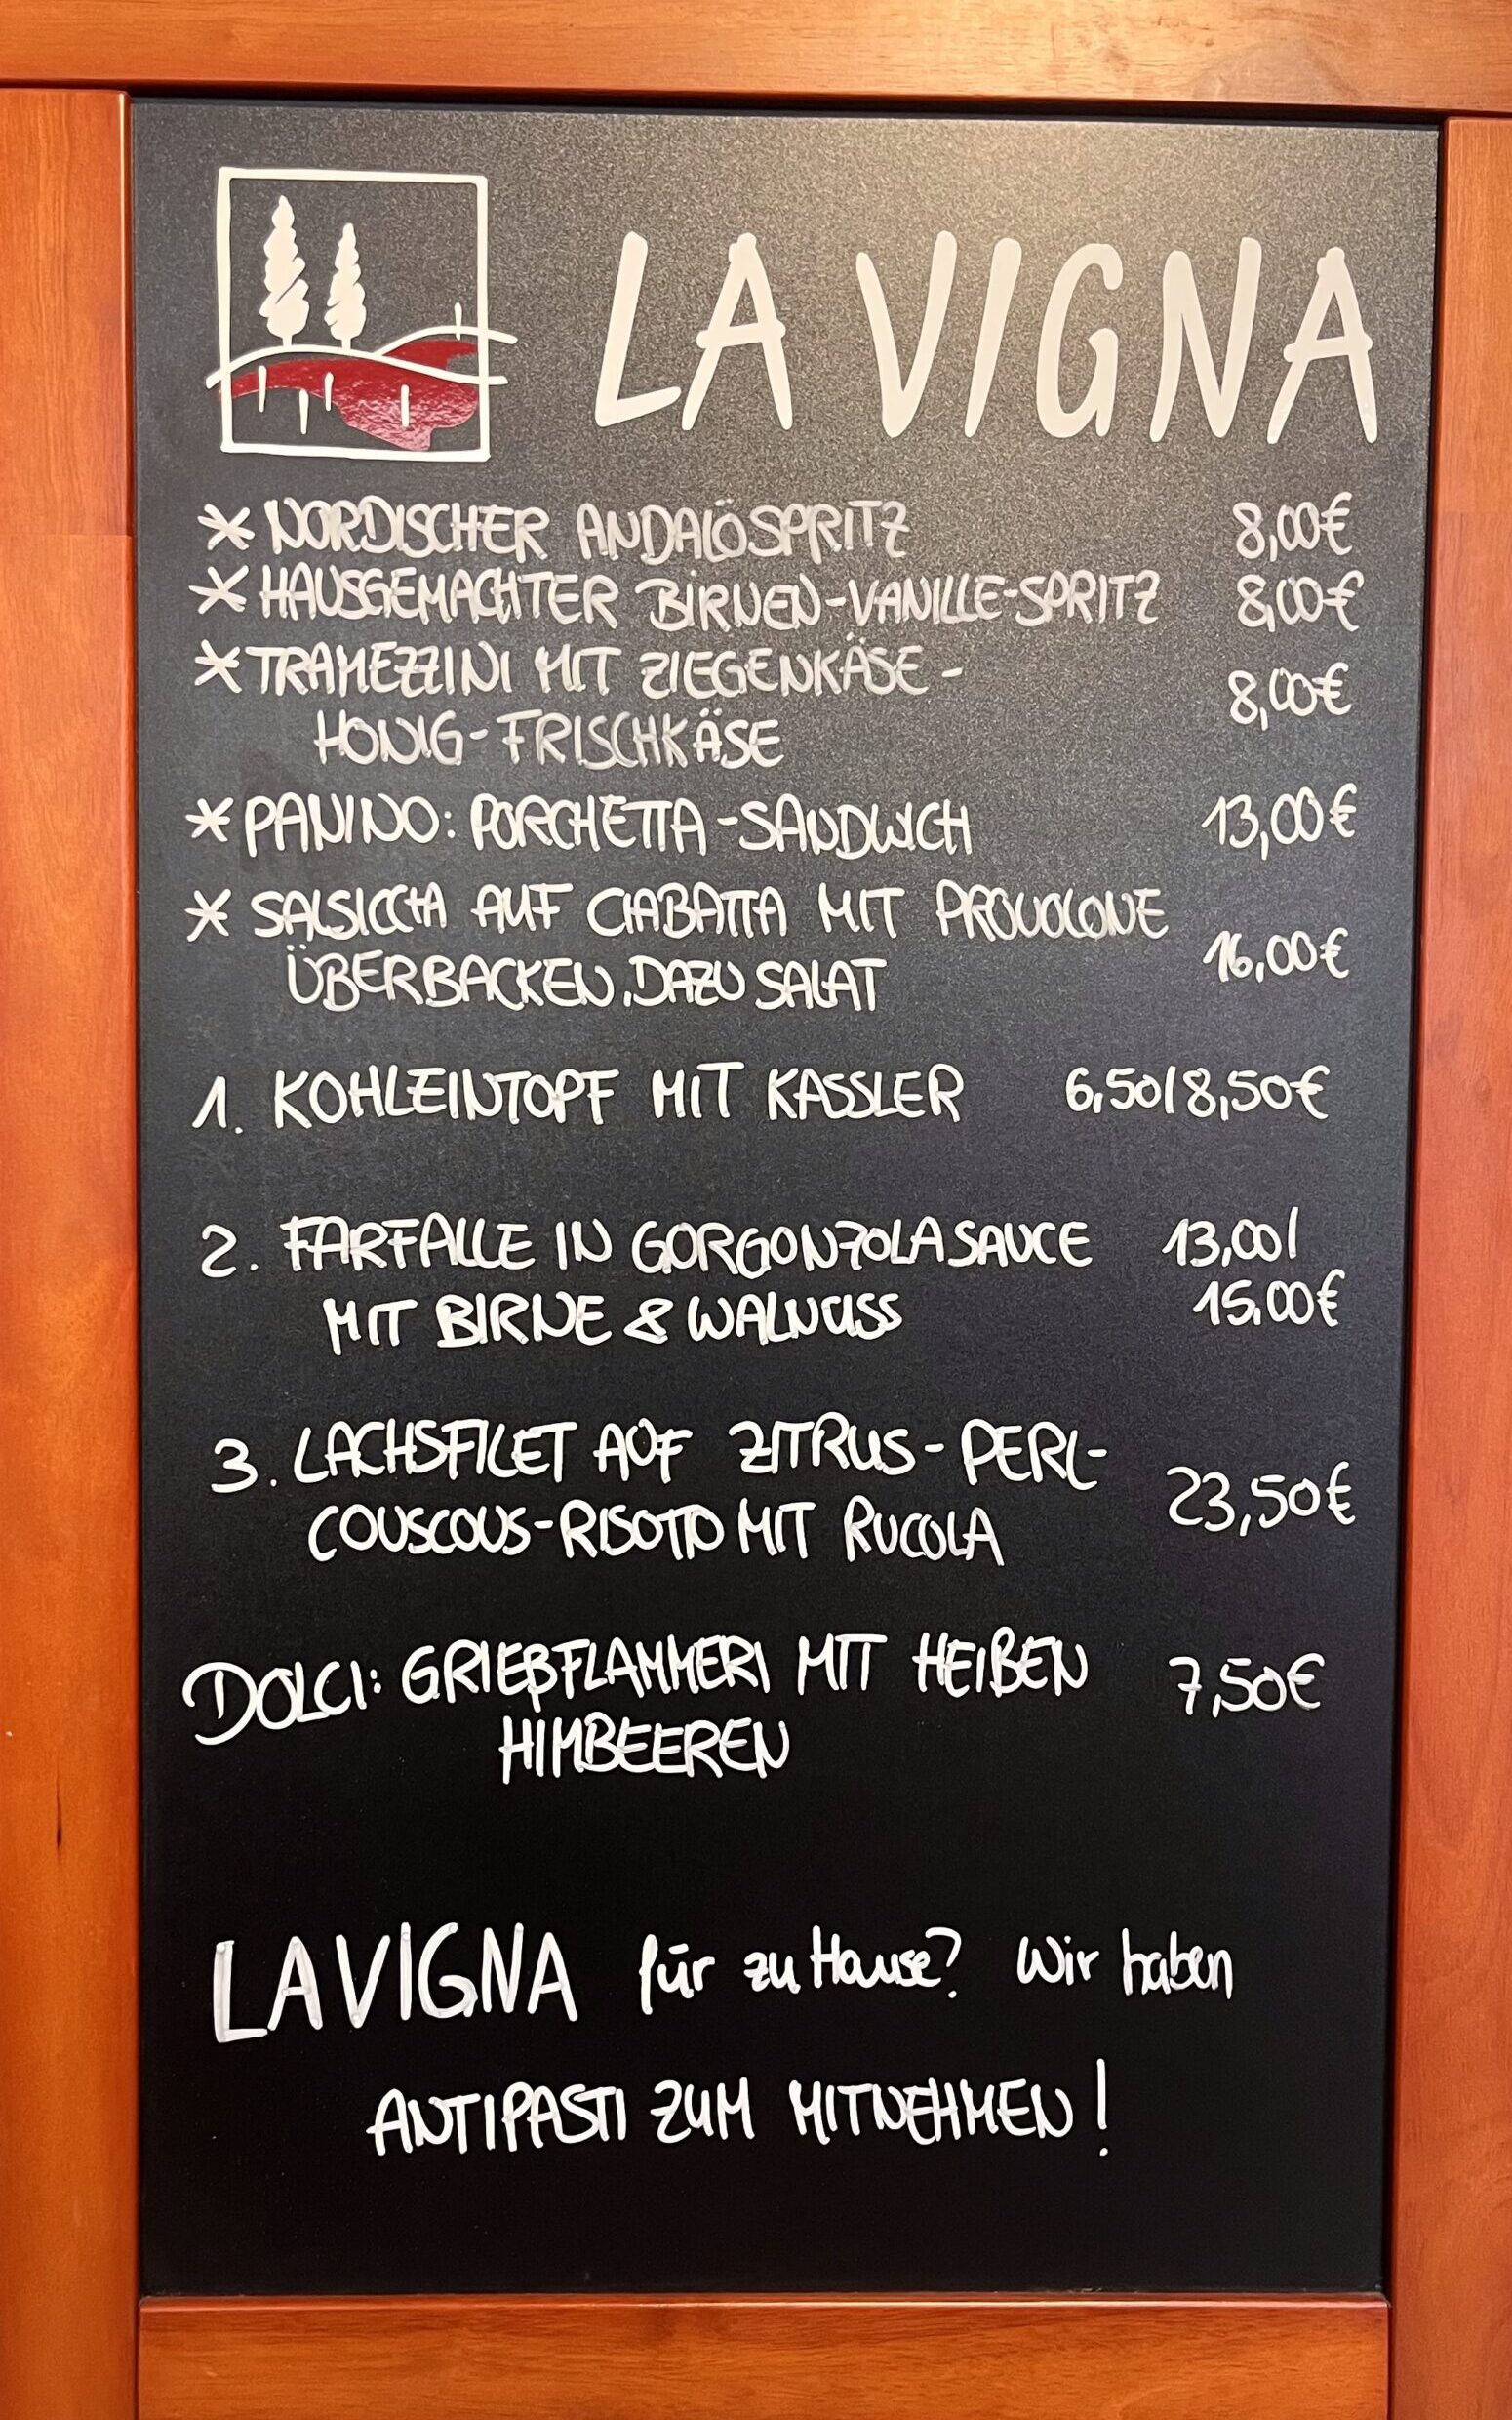 LA VIGNA
* NORDISCHER ANDALÖSPRITZ 8,00€
* HAUSGEMACHTER BIRNEN-VANILLE-SPRITZ 8,00€
* TRAMEZZINI MIT ZIEGENKÄSE-
HONIG-FRISCHKÄSE 8,00€
* PANINO: PORCHETTA-SANDWICH 13,00€
* SALSICCIA AUF CIABATTA MIT PROVOLONE
ÜBERBACKEN, DAZU SALAT 16,00€
1. KOHLEINTOPF MIT KASSLER 6,50/8,50€
2. FARFALLE IN GORGONZOLASAUCE 13,00/
MIT BIRNE & WALNUSS 15,00€
3. LACHSFILET AUF ZITRUS-PERL-
COUSCOUS-RISOTTO MIT RUCOLA 23,50€
DOLCI: GRIEßFLAMMERI MIT HEIßEN 7,50€
HIMBEEREN
LA VIGNA für zu Hause? Wir haben
ANTIPASTI ZUM MITNEHMEN!